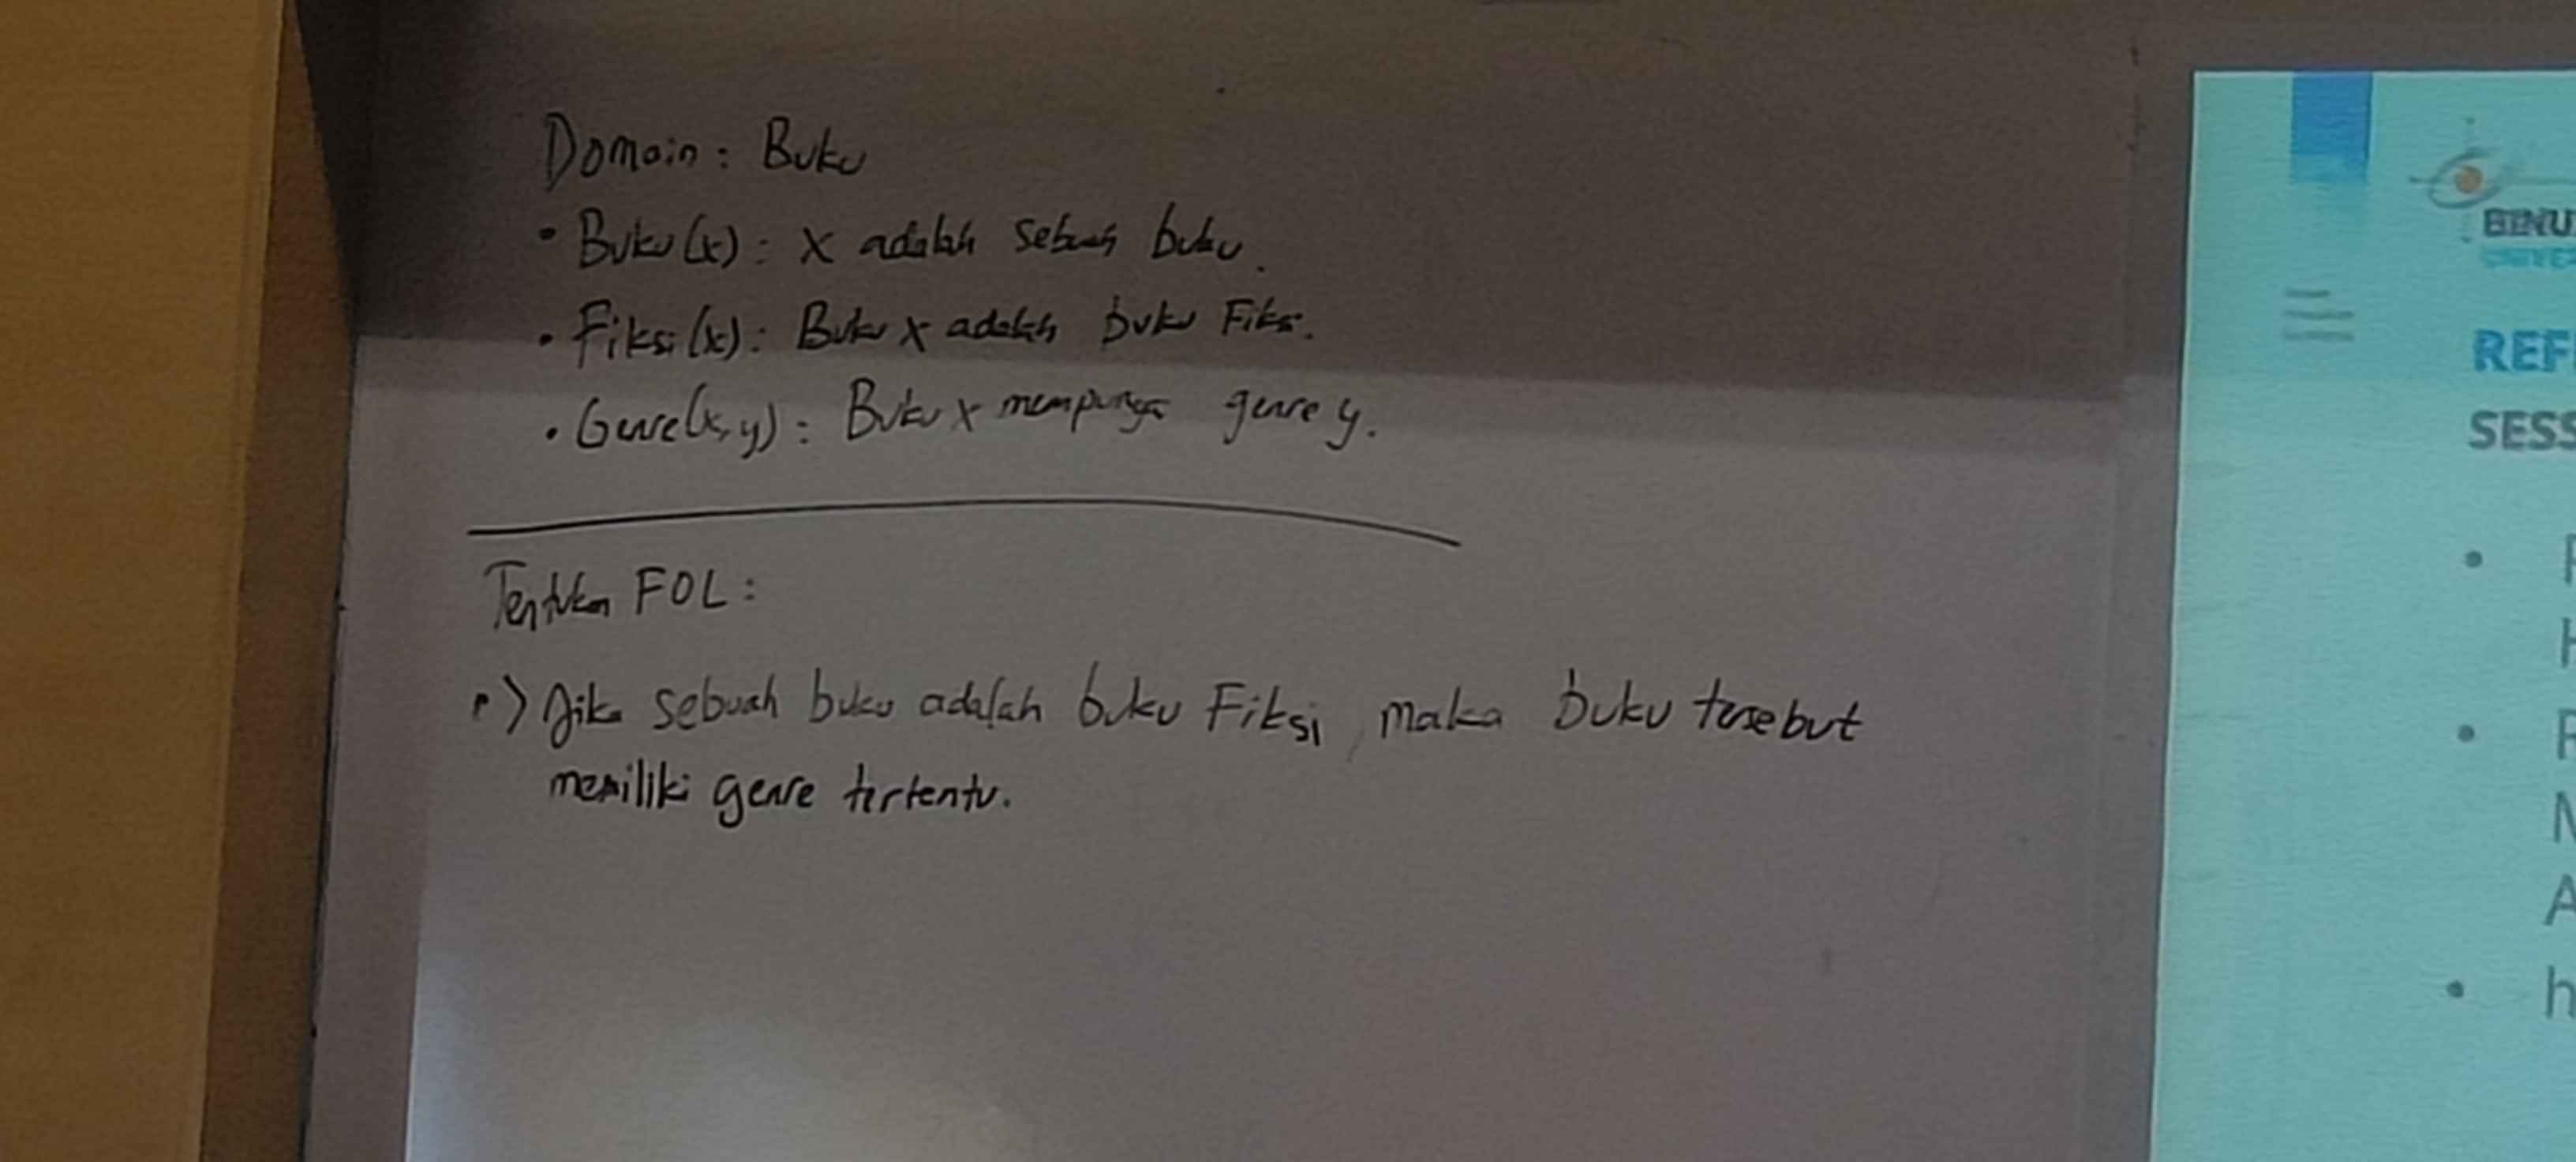 Domain : Buku
• Buku(x) : x adalah sebuah buku.
• Fiksi(x) : Buku x adalah buku Fiksi.
• Genre(x,y) : Buku x mempunyai genre y.
Tentukan FOL :
•> Jika sebuah buku adalah buku Fiksi, maka buku tersebut
memiliki genre tertentu.
BINU
UNIVE
REF
SESS